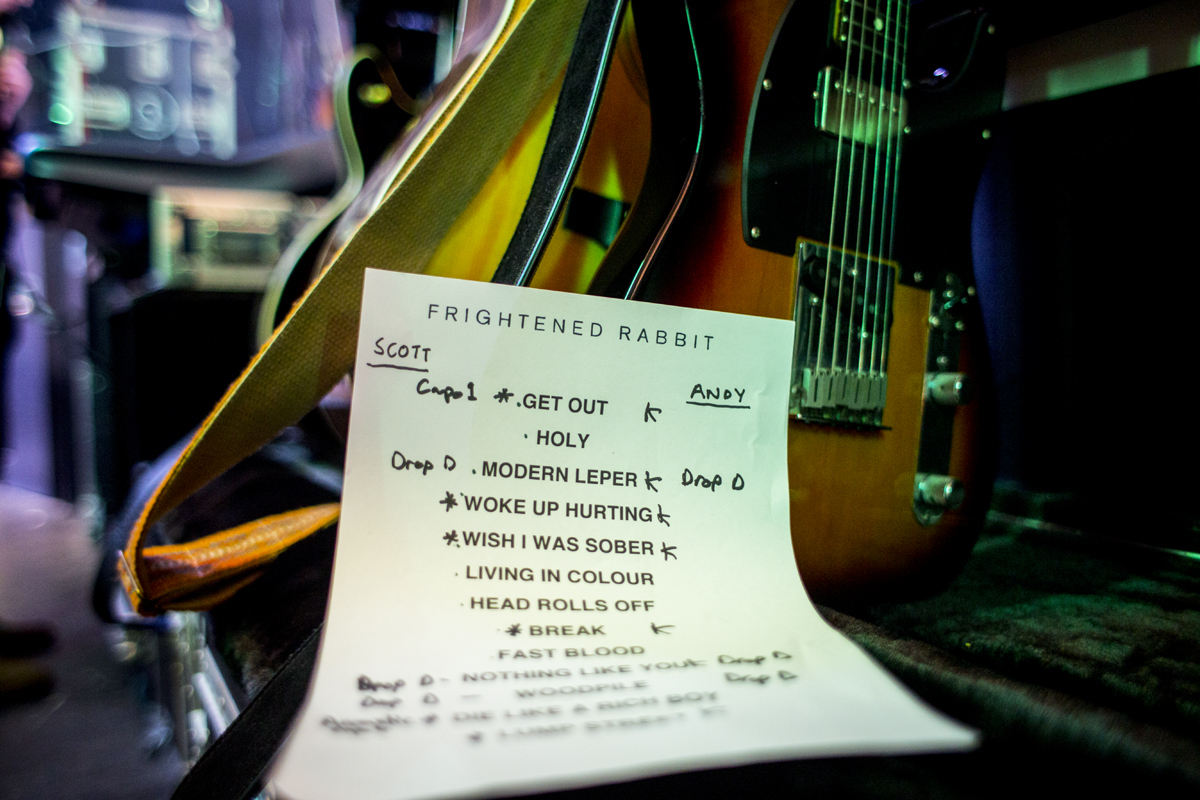 FRIGHTENED RABBIT
SCOTT
ANDY
Capo 1 * . GET OUT K
· HOLY
Drop D . MODERN LEPER K Drop D
* WOKE UP HURTING K
* WISH I WAS SOBER K
· LIVING IN COLOUR
· HEAD ROLLS OFF
* BREAK K
· FAST BLOOD
Drop D - NOTHING LIKE YOU K Drop D
Drop D - WOODPILE Drop D
* DIE LIKE A RICH BOY
* LUMP STREET K